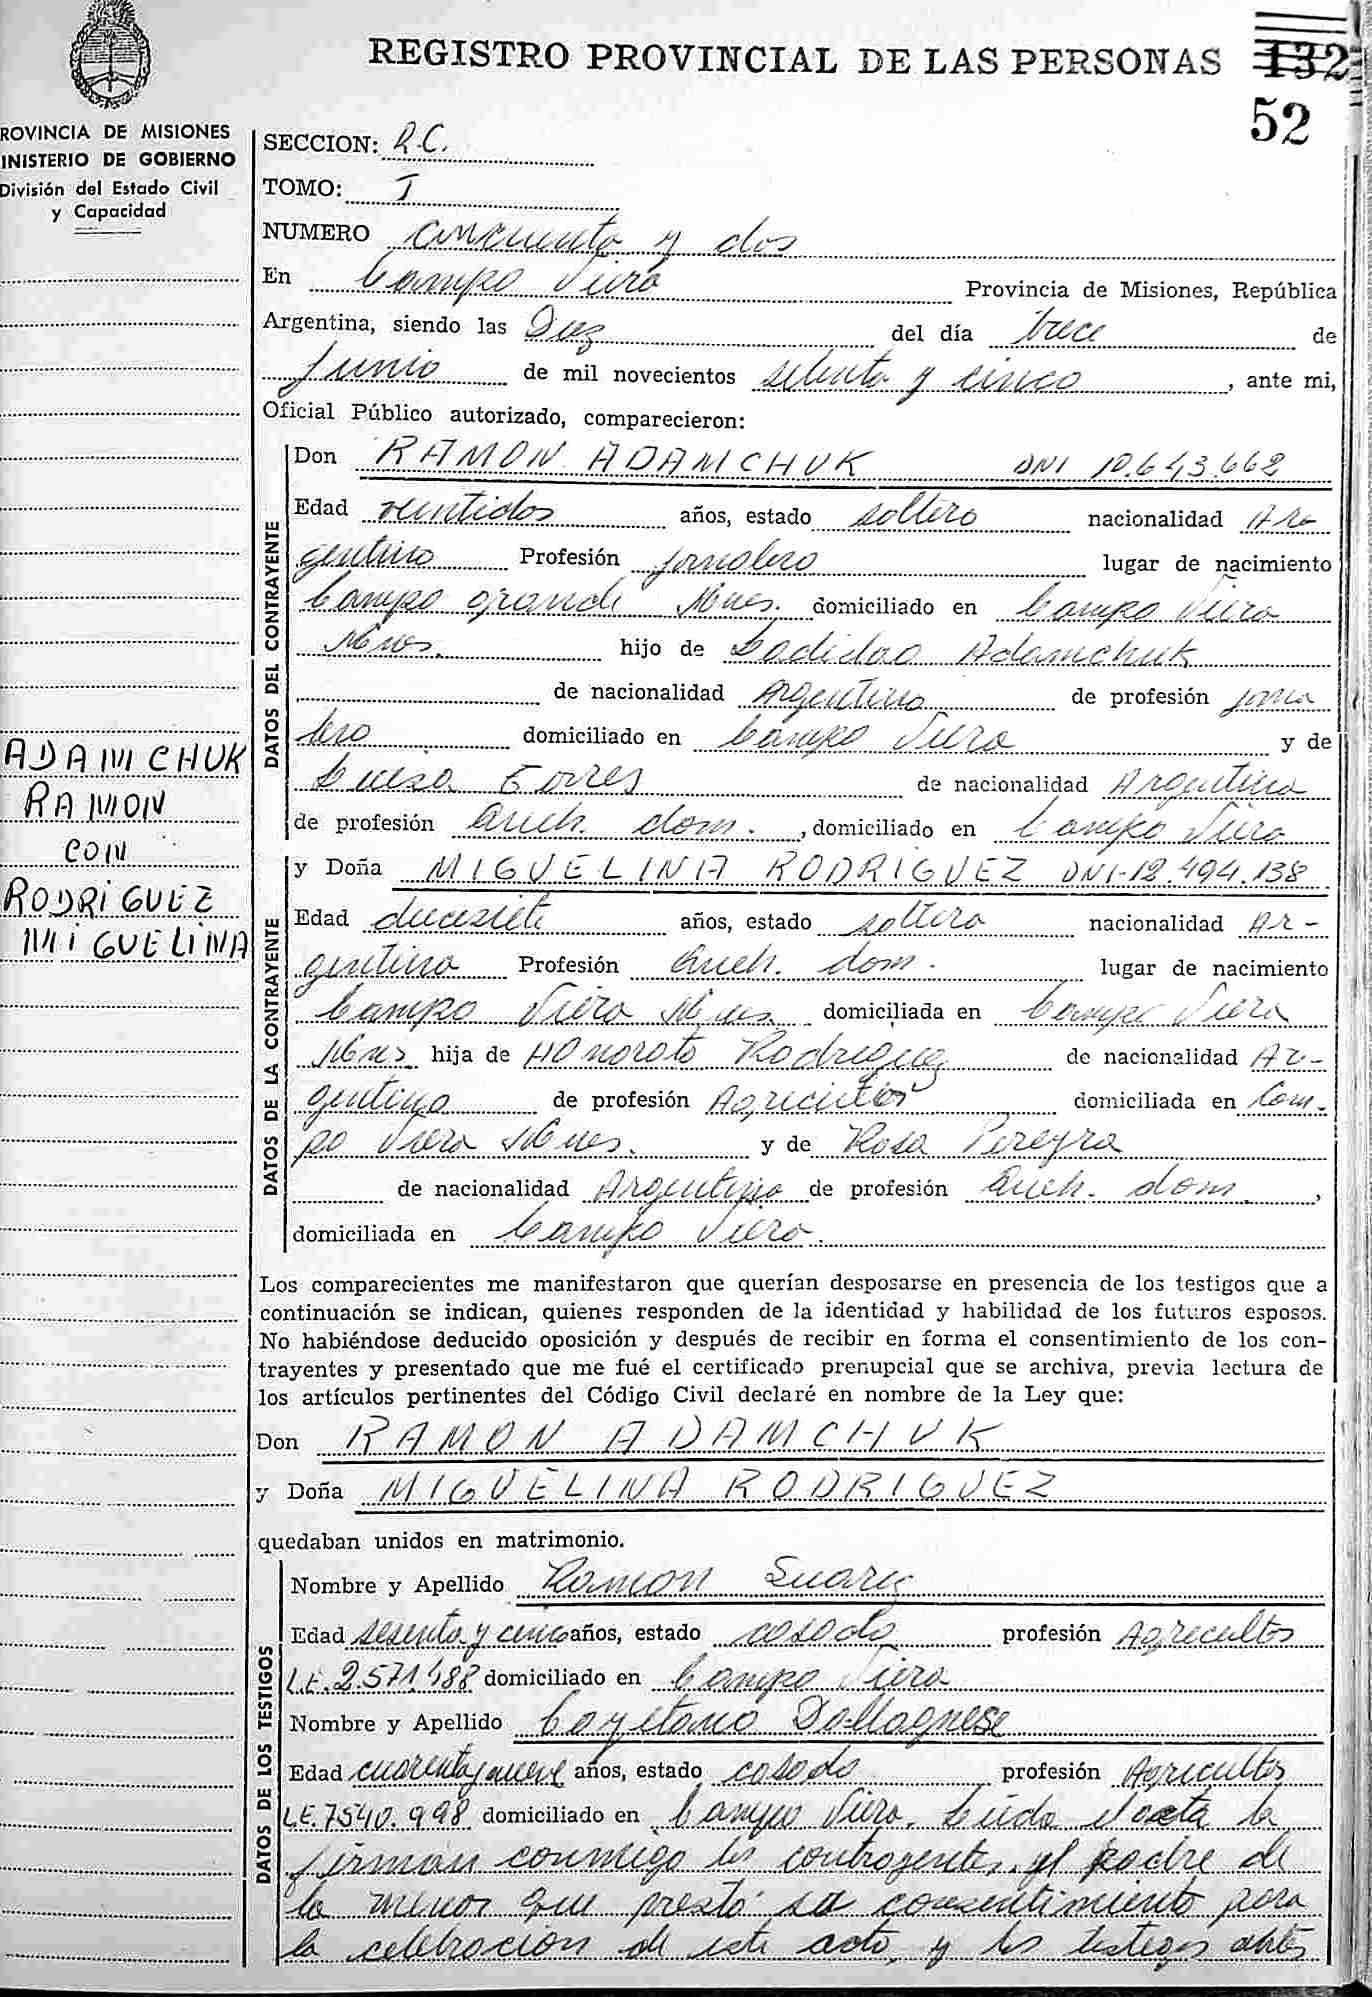 REGISTRO PROVINCIAL DE LAS PERSONAS 132
52
ROVINCIA DE MISIONES
INISTERIO DE GOBIERNO
División del Estado Civil
y Capacidad
ADAMCHUK
RAMON
CON
RODRIGUEZ
MIGUELINA
SECCION: R.C.
TOMO: I
NUMERO cincuenta y dos
En Campo Viera Provincia de Misiones, República
Argentina, siendo las Diez del día trece de
Junio de mil novecientos setenta y cinco, ante mi,
Oficial Público autorizado, comparecieron:
DATOS DEL CONTRAYENTE
Don RAMON ADAMCHUK DNI 10.643.662
Edad veintidos años, estado soltero nacionalidad Ar
gentino Profesión jornalero lugar de nacimiento
Campo grande Mnes. domiciliado en Campo Viera
Mnes. hijo de Ladislao Adamchuk
de nacionalidad Argentino de profesión jorna
lero domiciliado en Campo Viera y de
Luisa Torres de nacionalidad Argentina
de profesión Queh. dom. , domiciliado en Campo Viera
DATOS DE LA CONTRAYENTE
y Doña MIGUELINA RODRIGUEZ DNI-12.494.138
Edad diecisiete años, estado soltera nacionalidad Ar-
gentina Profesión Queh. dom. lugar de nacimiento
Campo Viera Mnes. domiciliada en Campo Viera
Mnes hija de HOnorato Rodriguez de nacionalidad Ar-
gentino de profesión Agricultor domiciliada en Cam-
po Viera Mnes. y de Rosa Pereyra
de nacionalidad Argentina de profesión Queh. dom. ,
domiciliada en Campo Viera.
Los comparecientes me manifestaron que querían desposarse en presencia de los testigos que a
continuación se indican, quienes responden de la identidad y habilidad de los futuros esposos.
No habiéndose deducido oposición y después de recibir en forma el consentimiento de los con-
trayentes y presentado que me fué el certificado prenupcial que se archiva, previa lectura de
los artículos pertinentes del Código Civil declaré en nombre de la Ley que:
Don RAMON ADAMCHUK
y Doña MIGUELINA RODRIGUEZ
quedaban unidos en matrimonio.
DATOS DE LOS TESTIGOS
Nombre y Apellido Ramon Suarez
Edad sesenta y cinco años, estado casado profesión Agricultor
L.E. domiciliado en Campo Viera
Nombre y Apellido Cayetano Dallagnese
Edad cuarenta y nueve años, estado casado profesión Agricultor
L.E. 7540.998 domiciliado en Campo Viera. Leida el acta la
firman conmigo los contrayentes, el padre de
la menor que prestó su consentimiento para
la celebracion de este acto, y los testigos